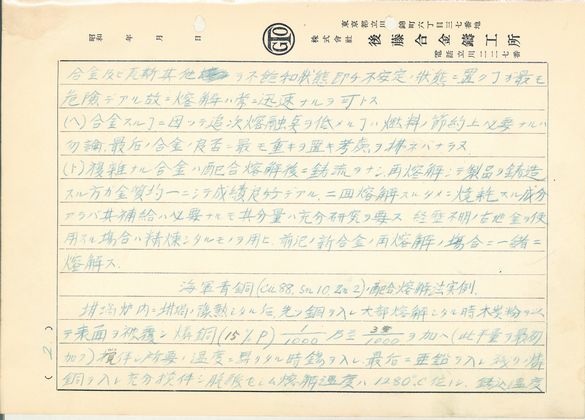 東京都立川 錦町六丁目三七番地
昭和　年　月　日
GTO
株式會社 後藤合金鑄工所
電話立川二二二七番
合金及ビ瓦斯其他 ヲ不飽和状態即チ不安定ノ状態ニ置クコヿヲ最モ
危險デアル故ニ熔解ハ常ニ迅速ナルヲ可トス
(ヘ) 合金スルヿニ因ツテ追次熔融点ヲ低メルヿハ燃料ノ節約上必要ナルハ
勿論、最后ノ合金ノ良否ニ最モ重キヲ置キ考慮ヲ拂ネバナラヌ
(ト) 複雑ナル合金ハ配合熔解後ニ鋳流ヲナシ、再熔解シテ製品ヲ鋳造
スル方カ金質均一ニシテ成績良好デアル、二回熔解スルタメニ焼耗スル成分
アラバ其補給ハ必要ナルモ其分量ハ充分研究ヲ要ス 経歴不明ノ古地金ヲ使
用スル場合ハ精煉シタルモノヲ用ヒ、前记ノ新合金ノ再熔解ノ場合ニ一緒ニ
熔解ス
海軍青銅(Cu 88. Sn 10. Zn 2)ノ配合熔解法実例.
坩堝炉内ニ坩堝ノ強熱シタル后先ヅ銅ヲ入レ大部熔解シタル時木炭粉ヲ以
テ表面ヲ被覆シ 燐銅(15% P) 1/1000 乃至 3/1000 ヲ加ヘ(此半量ヲ最初
加フ) 攪伴シ所要ノ温度ニ昇リタル時錫ヲ入レ、最后ニ亜鉛ヲ入レ残リノ燐
銅ヲ入レ充分攪伴シ脱酸セシム熔解温度ハ 1280°C 位ニシ、鋳込温度
(2)